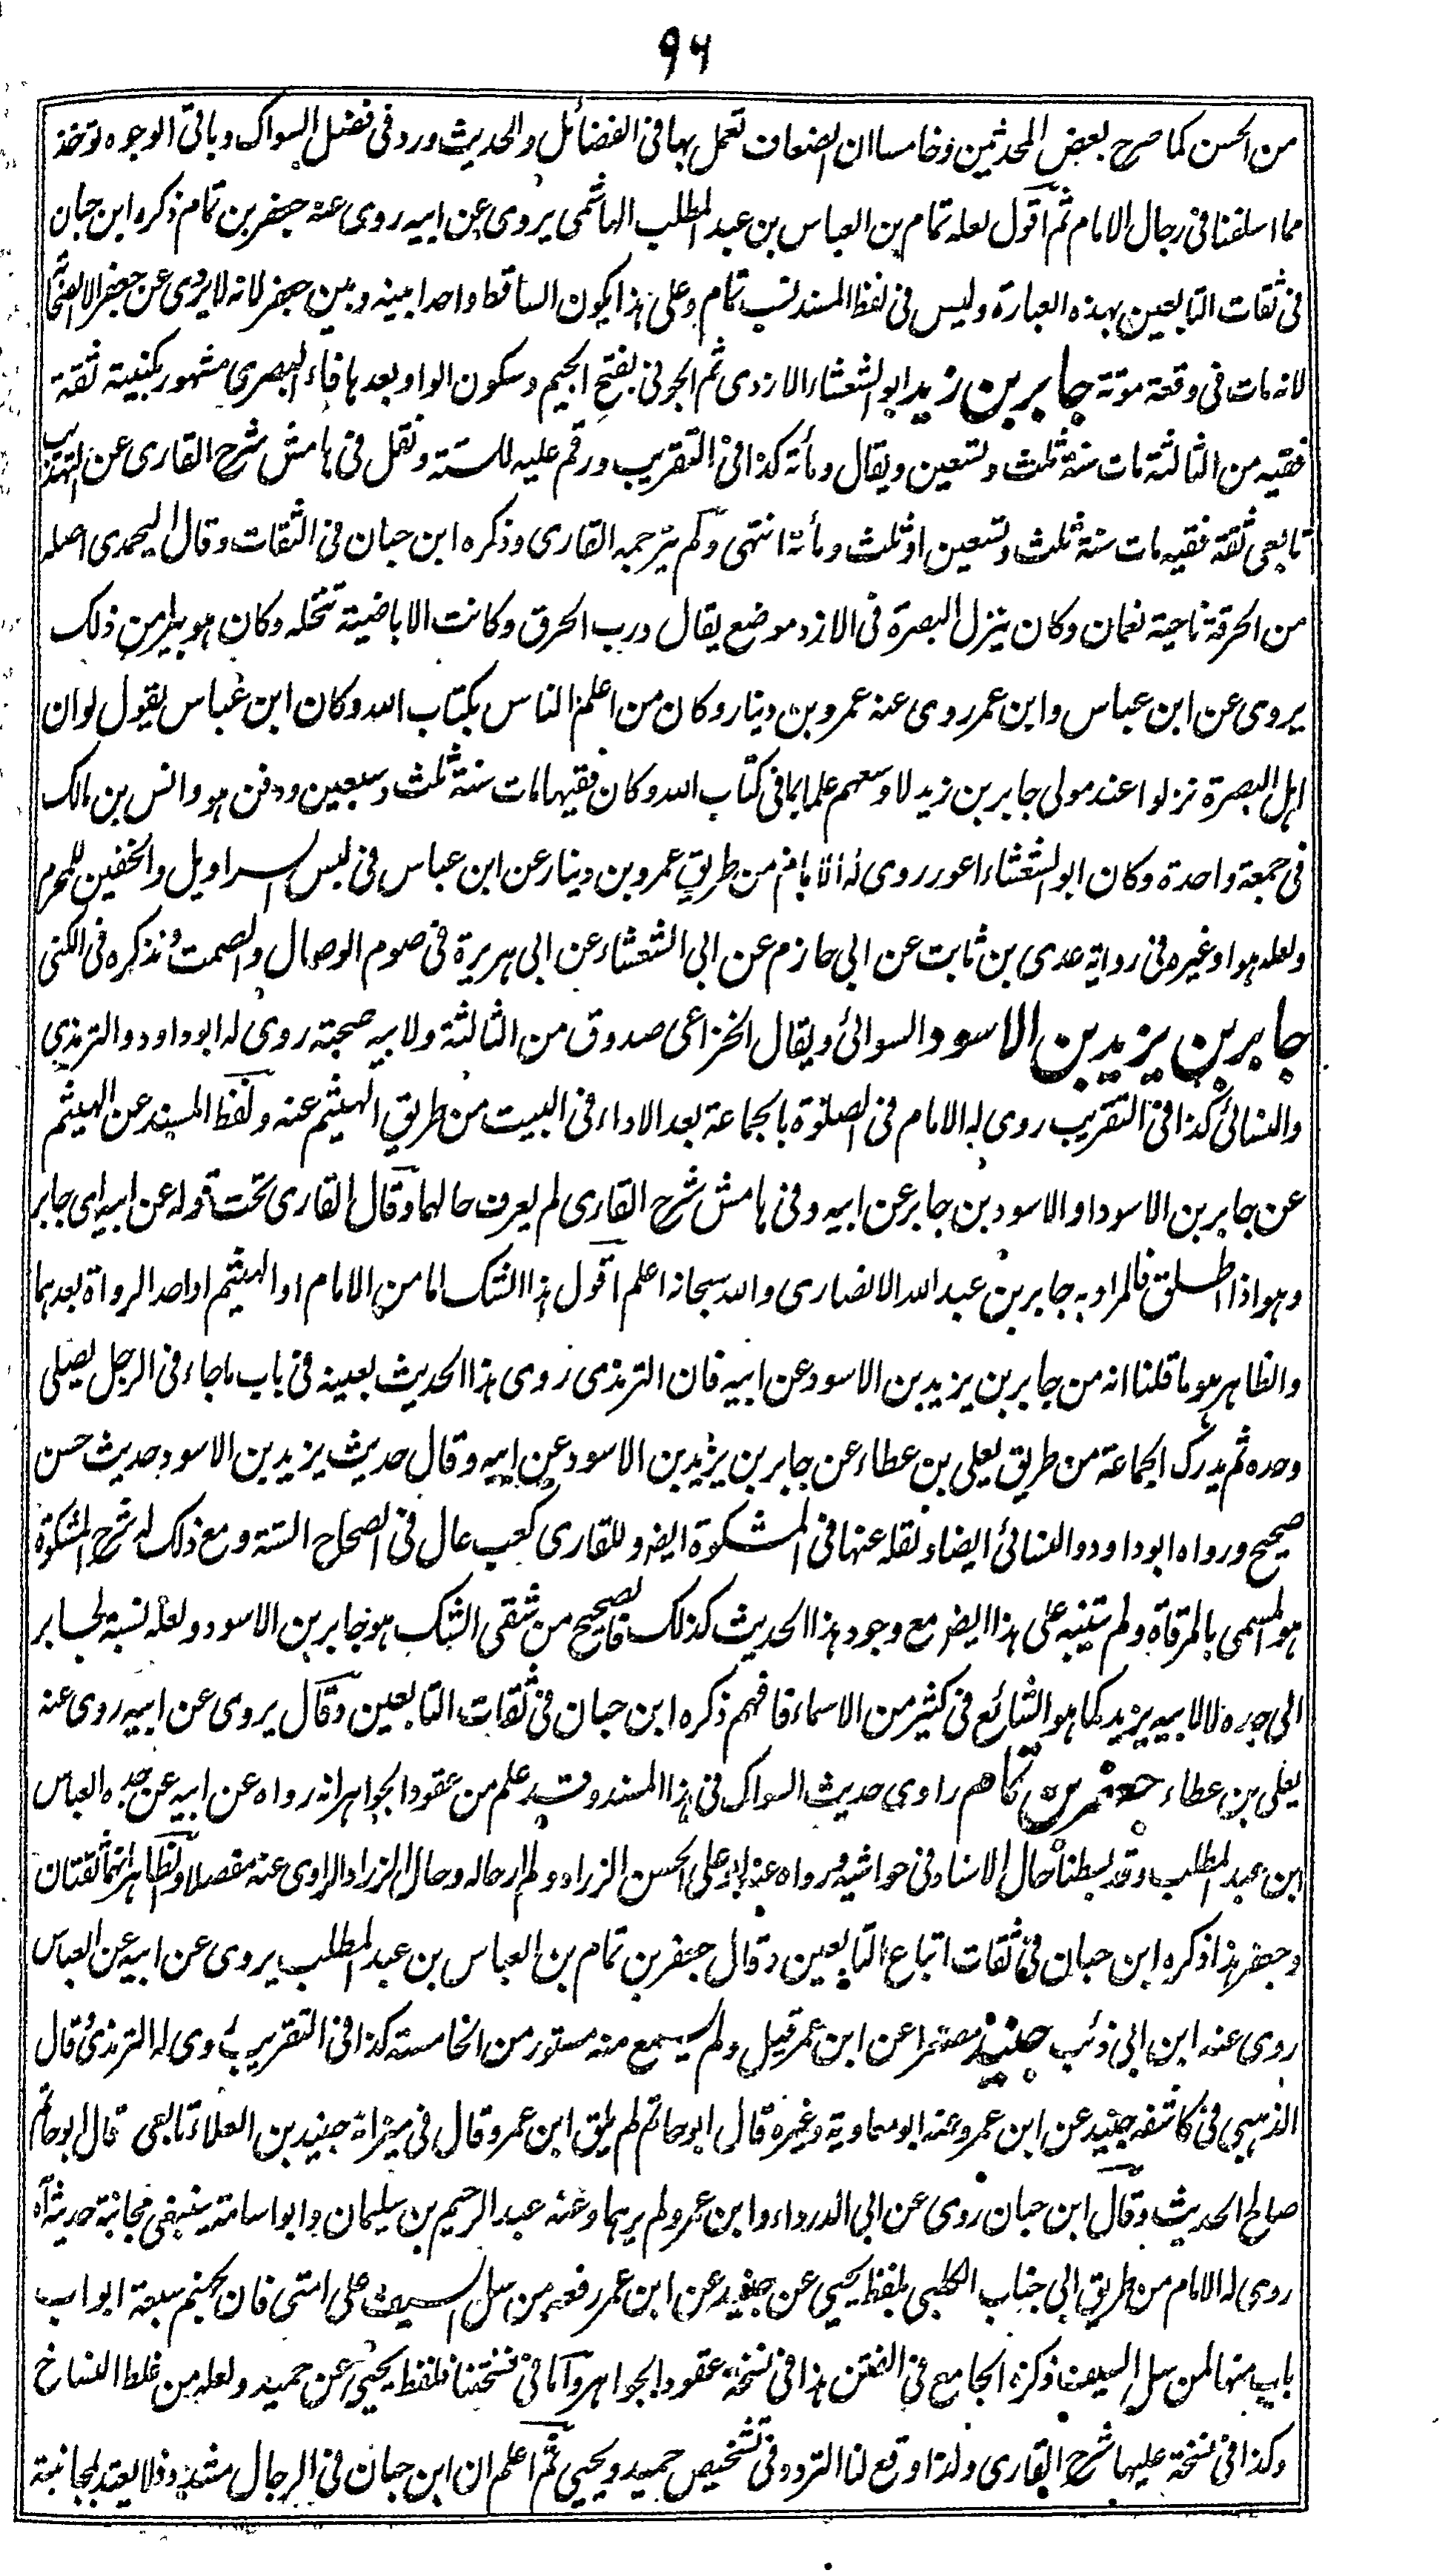 ٩٦
من الحسن كما صرح بعض المحدثين وخامسا ان الضعاف تعمل بها فى الفضائل والحديث ورد فى فضل السواك وباقى الوجوه توخذ
مما اسلفنا فى رجال الامام ثم اقول لعله تمام بن العباس بن عبد المطلب الهاشمى يروى عن ابيه روى عنه جعفر بن تمام ذكره ابن حبان
فى ثقات التابعين بهذه العبارة وليس فى لفظ المسند نسب تمام وعلى هذا يكون الساقط واحدا بينه وبين جعفر لانه لا يروى عن جعفر الا
لانه مات فى وقعة موتة جابر بن زيد ابو الشعثاء الازدى ثم الجوفى بفتح الجيم وسكون الواو بعدها فاء البصرى مشهور بكنيته ثقة
فقيه من الثالثة مات سنة ثلث وتسعين ويقال ومأة كذا فى التقريب ورقم عليه للستة ونقل فى هامش شرح القارى عن التهذيب
تابعى ثقة فقيه مات سنة ثلث وتسعين او ثلث ومأة انتهى ولم يترجمه القارى وذكره ابن حبان فى الثقات وقال اليحمدى اصله
من الحرقة ناحية نعمان وكان ينزل البصرة فى الازد موضع يقال درب الحرق وكانت الاباضية تنتحله وكان هو يتبرأ من ذلك
يروى عن ابن عباس وابن عمر روى عنه عمرو بن دينار وكان من اعلم الناس بكتاب الله وكان ابن عباس يقول لو ان
اهل البصرة نزلوا عند مولى جابر بن زيد لاوسعهم علما بما فى كتاب الله وكان فقيها مات سنة ثلث وسبعين ودفن هو وانس بن مالك
فى جمعة واحدة وكان ابو الشعثاء اعور روى له الامام من طريق عمرو بن دينار عن ابن عباس فى لبس السراويل والخفين للمحرم
ولعله هو او غيره فى رواية عدى بن ثابت عن ابى حازم عن ابى الشعثاء عن ابى هريرة فى صوم الوصال والصمت ونذكره فى الكنى
جابر بن يزيد بن الاسود السوائى ويقال الخزاعى صدوق من الثالثة ولابيه صحبة روى له ابو داود والترمذي
والنسائى كذا فى التقريب روى له الامام فى الصلوة بالجماعة بعد الاداء فى البيت من طريق الهيثم عنه ولفظ المسند عن الهيثم
عن جابر بن الاسود او الاسود بن جابر عن ابيه وفى هامش شرح القارى لم يعرف حالهما وقال القارى تحت قوله عن ابيه اى جابر
وهو اذا اطلق فالمراد به جابر بن عبد الله الانصارى والله سبحانه اعلم اقول هذا الشك اما من الامام او الهيثم او احد الرواة بعدهما
والظاهر هو ما قلنا انه من جابر بن يزيد بن الاسود عن ابيه فان الترمذى روى هذا الحديث بعينه فى باب ماجاء فى الرجل يصلى
وحده ثم يدرك الجماعة من طريق يعلى بن عطاء عن جابر بن يزيد بن الاسود عن ابيه وقال حديث يزيد بن الاسود حديث حسن
صحيح ورواه ابو داود والنسائى ايضا ونقله عنها فى المشكوة ايضا وللقارى كعب عال فى الصحاح الستة ومع ذلك له شرح المشكوة
هو المسمى بالمرقاة ولم يتنبه على هذا ايضا مع وجود هذا الحديث كذلك فالصحيح من شقى الشك هو جابر بن الاسود ولعله نسبة لجابر
الى جده لا لابيه يزيد كما هو الشائع فى كثير من الاسماء فافهم ذكره ابن حبان فى ثقات التابعين وقال يروى عن ابيه روى عنه
يعلى بن عطاء جعفر بن تمام راوي حديث السواك فى هذا المسند وقد علم من عقود الجواهر انه رواه عن ابيه عن جده العباس
ابن عبد المطلب وقد بسطنا حال الاسناد فى حواشيه ورواه عنه ابو على الحسن الزراد ولم ار حاله وحال الزراد الراوى عنه مفصلا والظاهر انهما ثقتان
وجعفر هذا ذكره ابن حبان فى ثقات اتباع التابعين وقال جعفر بن تمام بن العباس بن عبد المطلب يروى عن ابيه عن العباس
روى عنه ابن ابى ذئب جنيد مصغرا عن ابن عمر قيل ولم يسمع منه مستور من الخامسة كذا فى التقريب روى له الترمذى قال
الذهبي فى كاشفه جنيد عن ابن عمر وعنه ابو معاوية وغيره قال ابو حاتم لم يلق ابن عمر وقال فى ميزانه جنيد بن العلاء تابعى قال ابو حاتم
صالح الحديث وقال ابن حبان روى عن ابى الدرداء وابن عمر ولم يرهما وعنه عبد الرحيم بن سليمان وابو اسامة ينبغى مجانبة حديثه آه
روى له الامام من طريق ابى جناب الكلبى بلفظ يحيى عن جنيد عن ابن عمر رفعه من سل السيف على امتى فان لجهنم سبعة ابواب
باب منها لمن سل السيف ذكره الجامع فى الفتن هذا فى نسخة عقود الجواهر واما فى نسختنا فلفظ يحيى عن حميد ولعله من غلط النساخ
وكذا فى نسخة عليها شرح القارى ولذا وقع لنا التردد فى تشخيص حميد ويحيى ثم اعلم ان ابن حبان فى الرجال متشدد فلا يعتد لمجانبة